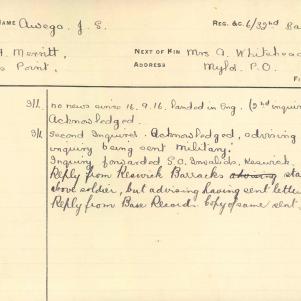 NAME Awego. J. E. REG. &c. 6/32nd Ba
A. Merritt, NEXT OF KIN Mrs A. Whitehead
s Point. ADDRESS Myld P.O.
F
3/1. no news since 16.9.16. landed in Eng. (2nd inquir
Acknowledged.
9/1 Second Inquirer. Acknowledged, advising
inquiry being sent Military.
Inquiry forwarded S.O. Invalids, Keswick.
Reply from Keswick Barracks advising sta
above soldier, but advising having sent letter
Reply from Base Records. Copy of same sent.